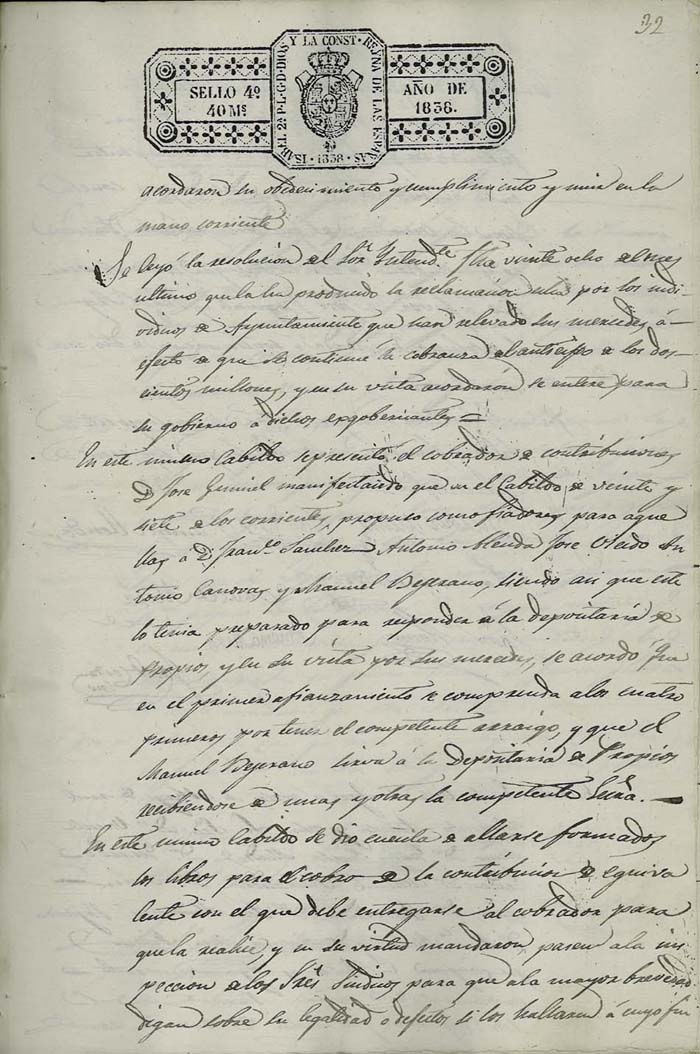 32
ISABEL 2ª P.L.G.D.DIOS Y LA CONST. REYNA DE LAS ESPAÑAS
1838
SELLO 4º
40 Mˢ
AÑO DE
1838.
acordaron su obedecimiento y cumplimiento y unir en la
mano corriente
Se leyó la resolución del Sor. Intendte. fha vinte ocho del mes
ultimo que la ha producido la reclamacion por los indi-
viduos de Ayuntamiento que han relevado sus mercedes á
efecto de que se continue la cobranza del antisipo de los dos-
cientos millones, y en su vista acordaron se entere para
su gobierno á dichos exgobernantes =
En este mismo Cabildo se presentó el cobrador de contribuciones
D. Jose manifestando que en el Cabildo de veinte y
siete de los corrientes, propuso como fiadores para aque
llas á D. Franco. Sanchez Antonio Jose Oledo An
tonio Canovas y Manuel Bejerano, siendo asi que este
lo tenia preparado para responder á la depositaría de
Propios, y en su vista por sus mercedes, se acordó que
en el primer afianzamiento se comprenda a los cuatro
primeros por tener el competente arraigo, y que el
Manuel Bejerano sirva á la depositaria de Propios
recibiendose de unas y otras la competente Escra. —
En este mismo Cabildo se dio cuenta de allarse formados
los libros para el cobro de la contribucion de equiva
lente con el que debe entregarse al cobrador para
que la realice, y en su virtud mandaron pasen a la ins
peccion de los Sres. Sindicos para que a la mayor brevedad
digan sobre su legalidad o defectos si los hallaren á cuyo fin